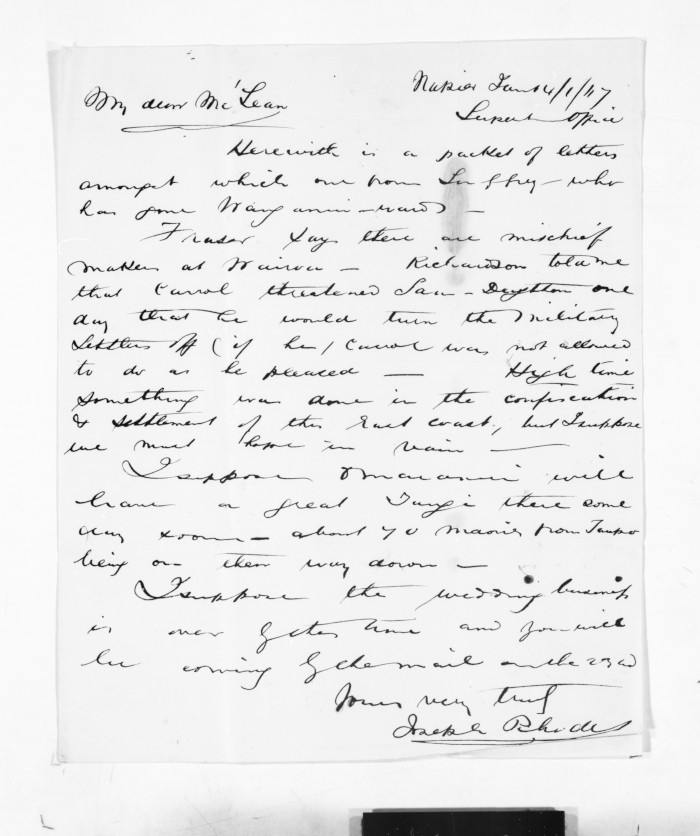 Napier Jan 14/1/67
My dear McLean
Supert Office
Herewith is a packet of letters
amongst which one from - who
has gone Wanganui-wards -
Fraser says there are mischief
makers at Wairoa - Richardson told me
that Carrol threatened Sam - Deighton one
day that he would turn the Military
Settlers off (if he) Carrol was not allowed
to do as he pleased - High time
something was done in the confiscation
& settlement of this East Coast, but I suppose
we must hope in vain -
I suppose will
have a great Tangi there some
day soon - about 70 maories from Taupo
being on their way down -
I suppose the wedding business
is over by this time and you will
be coming by the mail on the 23rd
Yours very truly
Joseph Rhodes